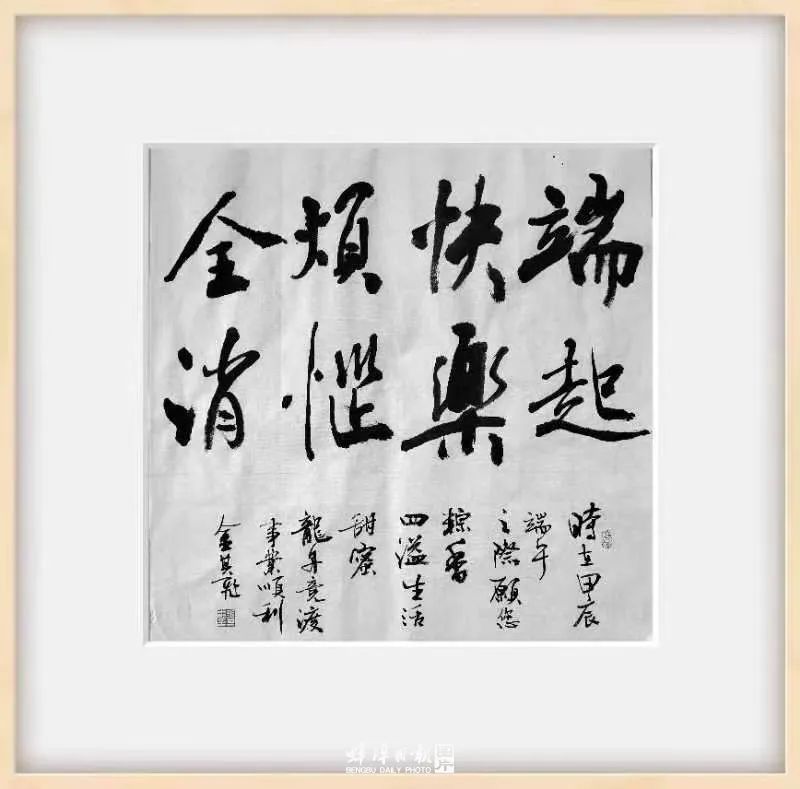 端起
快樂
煩惱
全消
時在甲辰
端午
之際願您
粽香
四溢生活
甜蜜
龍舟竞渡
事業順利
金其
蚌埠日報
BENGBU DAILY PHOTO